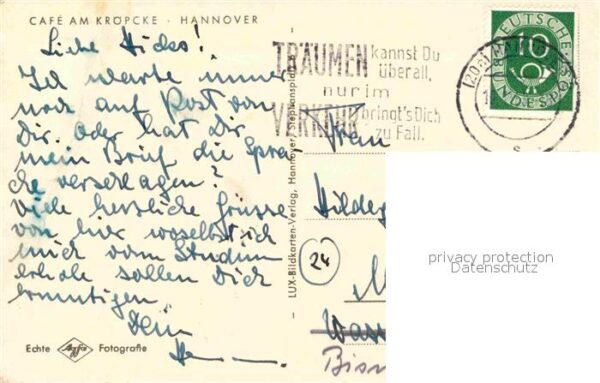 CAFÉ AM KRÖPCKE · HANNOVER
Liebe Hildes!
Ich warte immer
noch auf Post von
Dir. Oder hat Dir
mein Brief die Spra
che verschlagen?
Viele herzliche Grüsse
von hier woselbst ich
mich vom Studium
erhole sollen Dich
ermutigen
Dein
Echte Agfa Fotografie
LUX-Bildkarten-Verlag, Hannover, Stephansplatz
TRÄUMEN kannst Du
überall,
nur im
VERKEHR bringt's Dich
zu Fall.
DEUTSCHE
10
BUNDESPOST
(20a) HANNO
Frau
Hildeg
24
privacy protection
Datenschutz